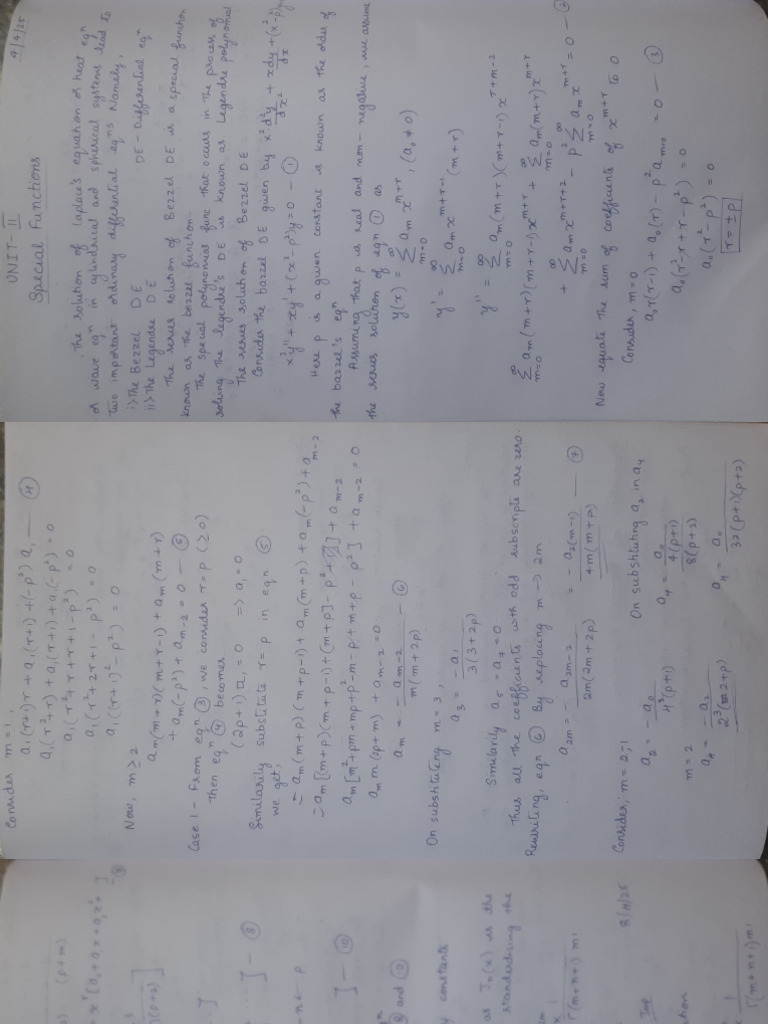 UNIT-II 9/4/25
Special Functions
The solution of Laplace's equation or heat eqn
or wave eqn in cylindrical and spherical systems lead to
two important ordinary differential eqns Namely,
i) The Bezzel DE DE - Differential eqn
ii) The Legendre DE
The series solution of Bezzel DE is a special function
known as the bezzel function.
The special polynomial func that occurs in the process of
solving the legendre's DE is known as Legendre polynomial
The series solution of Bezzel DE
Consider the bazzel DE given by x² d²y/dx² + x dy/dx + (x²-p²)y
x²y'' + xy' + (x²-p²)y = 0 — ①
Here p is a given constant is known as the order of
the bazzel's eqn
Assuming that p is real and non-negative, we assume
the series solution of eqn ① as
y(x) = ∞Σm=0 aₘ x^(m+r), (a₀ ≠ 0)
y' = ∞Σm=0 aₘ x^(m+r-1) (m+r)
y'' = ∞Σm=0 aₘ(m+r)(m+r-1) x^(r+m-2)
∞Σm=0 aₘ(m+r)(m+r-1) x^(m+r) + ∞Σm=0 aₘ(m+r) x^(m+r)
+ ∞Σm=0 aₘ x^(m+r+2) - p² ∞Σm=0 aₘ x^(m+r) = 0 — ②
Now equate the sum of coefficients of x^(m+r) to 0
Consider, m=0
a₀r(r-1) + a₀(r) - p²aₘ₌₀ = 0 — ③
a₀(r²-r+r-p²) = 0
a₀(r²-p²) = 0
r = ±p
Consider m=1,
a₁(r+1)r + a₁(r+1) + (-p²)a₁ — ④
a₁(r²+r) + a₁(r+1) + a₁(-p²) = 0
a₁(r²+r+r+1-p²) = 0
a₁(r²+2r+1-p²) = 0
a₁((r+1)²-p²) = 0
Now, m ≥ 2
aₘ(m+r)(m+r-1) + aₘ(m+r)
+ aₘ(-p²) + aₘ₋₂ = 0 — ⑤
Case 1 - From eqn ③, we consider r=p (≥0)
Then eqn ④ becomes
(2p+1)a₁ = 0 ⇒ a₁ = 0
Similarily substitute r=p in eqn ⑤
we get,
= aₘ(m+p)(m+p-1) + aₘ(m+p) + aₘ(-p²) + aₘ₋₂
= aₘ[(m+p)(m+p-1) + (m+p) - p²] + aₘ₋₂
aₘ[m²+pm+mp+p²-m-p+m+p-p²] + aₘ₋₂ = 0
aₘ m(2p+m) + aₘ₋₂ = 0
aₘ = -aₘ₋₂/m(m+2p) — ⑥
On substituting m=3,
a₃ = -a₁/3(3+2p)
Similarly a₅ = a₇ = 0
Thus all the coefficients with odd subscripts are zero.
Rewriting, eqn ⑥ By replacing m → 2m
a₂ₘ = -a₂ₘ₋₂/2m(2m+2p) = -a₂(m-1)/4m(m+p) — ⑦
Consider, m=2,1
a₂ = -a₀/4(p+1)
m=2
On substituting a₂ in a₄
a₄ = a₀/32(p+1)(p+2)
(p+m)
(p+2)]
] — ⑨
] — ⑩
and ⑩
constants
as Jₙ(x) is the
standardising the
Γ(m+n+1) m!
8/4/25
Γ(m+n+1) m!